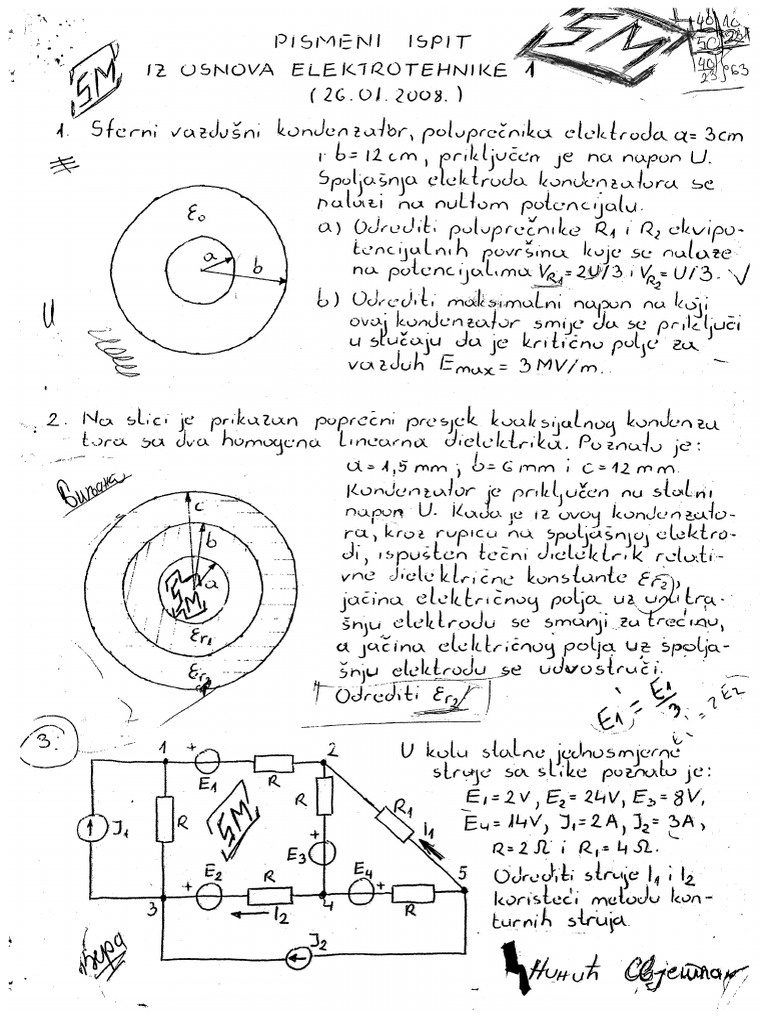 PISMENI ISPIT
IZ OSNOVA ELEKTROTEHNIKE 1
(26.01.2008.)
SM
SM
40 10
50
40
23 63
1. Sferni vazdušni kondenzator, poluprečnika elektroda a=3cm
i b=12cm, priključen je na napon U.
Spoljašnja elektroda kondenzatora se
nalazi na nultom potencijalu.
a) Odrediti poluprečnike R1 i R2 ekvipo-
tencijalnih površina koje se nalaze
na potencijalima VR1=2U/3 i VR2=U/3.
b) Odrediti maksimalni napon na koji
ovaj kondenzator smije da se priključi
u slučaju da je kritično polje za
vazduh Emax=3MV/m.
ε0
a
b
U
2. Na slici je prikazan poprečni presjek koaksijalnog kondenza
tora sa dva homogena linearna dielektrika. Poznato je:
a=1,5mm; b=6mm i c=12mm.
Kondenzator je priključen na stalni
napon U. Kada je iz ovog kondenzato-
ra, kroz rupicu na spoljašnjoj elektro-
di, ispušten tečni dielektrik relati-
vne dielektrične konstante εr2,
jačina električnog polja uz unutra-
šnju elektrodu se smanji za trećinu,
a jačina električnog polja uz spolja-
šnju elektrodu se udvostruči.
Odrediti εr2
c
b
a
SM
εr1
εr2
E1 = E1/3
= 2 E2
3.
U kolu stalne jednosmjerne
struje sa slike poznato je:
E1=2V, E2=24V, E3=8V,
E4=14V, J1=2A, J2=3A,
R=2Ω i R1=4Ω.
Odrediti struje I1 i I2
koristeći metodu kon-
turnih struja
1
+
E1
R
2
J1
R
SM
R
R1
I1
+
E3
+
E2
R
E4
+
R
5
3
I2
4
J2
Нинић Свјетлан